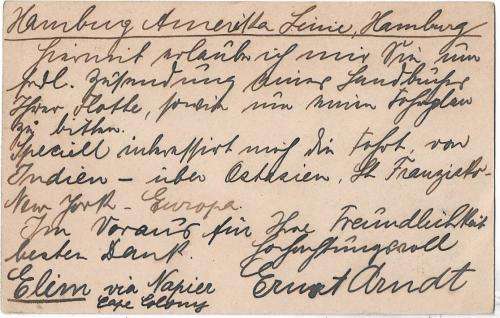 Hamburg Amerika Linie, Hamburg
Hiermit erlaube ich mir Sie um
frdl. Zusendung eines Handbuches
Ihrer Flotte, sowie um einen Fahrplan
zu bitten.
Speciell interessirt mich die Fahrt von
Indien – über Ostasien, St Franzisko-
New York - Europa.
Im Voraus für Ihre Freundlichkeit
besten Dank. Hochachtungsvoll
Elim via Napier Ernst Arndt
Cape Colony